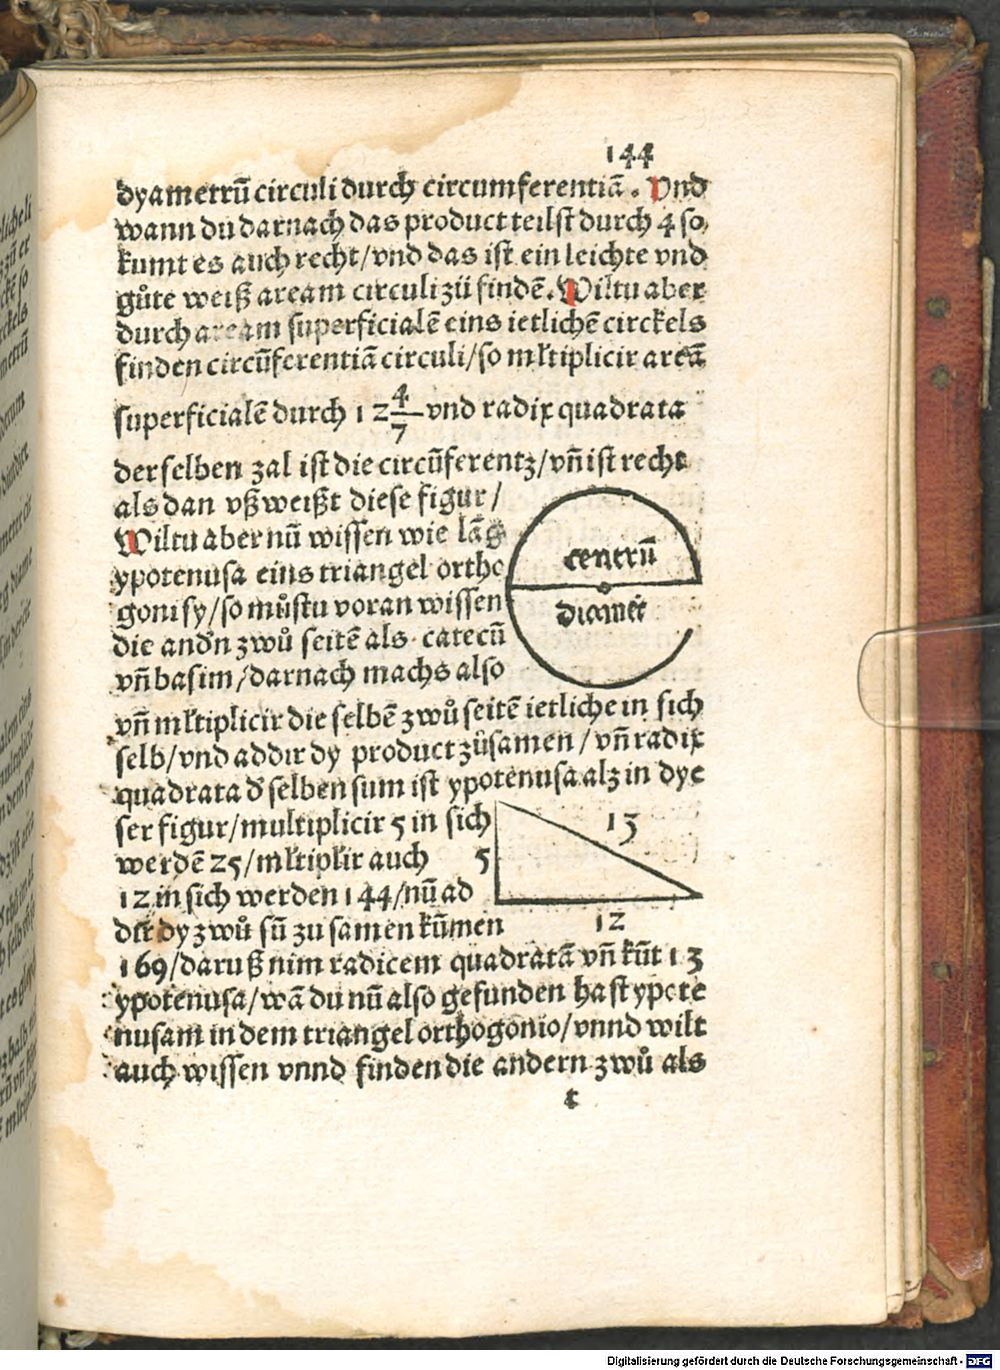 144
dyametrū circuli durch circumferentiā. Vnd
wann du darnach das product teilst durch 4 so
kumt es auch recht/vnd das ist ein leichte vnd
gůte weiß aream circuli zů findē. Wiltu aber
durch aream superficialē eins ietlichē circkels
finden circūferentiā circuli/so mltiplicir areā
superficialē durch 12 4/7 vnd radix quadrata
der selben zal ist die circūferentz/vñ ist recht
als dan vßweißt diese figur/
Wiltu aber nū wissen wie lāg
ypotenusa eins triangel ortho
goni sy/so můstu voran wissen
die andn̄ zwů seitē als catecū
vñ basim/darnach machs also
centrū
diamet
vñ mltiplicir die selbē zwů seitē ietliche in sich
selb/vnd addir dy product zůsamen/vñ radix
quadrata d̄ selben sum ist ypotenusa alz in dye
ser figur/multiplicir 5 in sich
werdē 25/mltiplir auch
12 in sich werden 144/nū ad
dir dy zwů sū zu samen kūmen
13
5
12
169/daruß nim radicem quadratā vñ kūt 13
ypotenusa/wā du nū also gefunden hast ypote
nusam in dem triangel orthogonio/vnnd wilt
auch wissen vnnd finden die andern zwů als
t
Digitalisierung gefördert durch die Deutsche Forschungsgemeinschaft - DFG